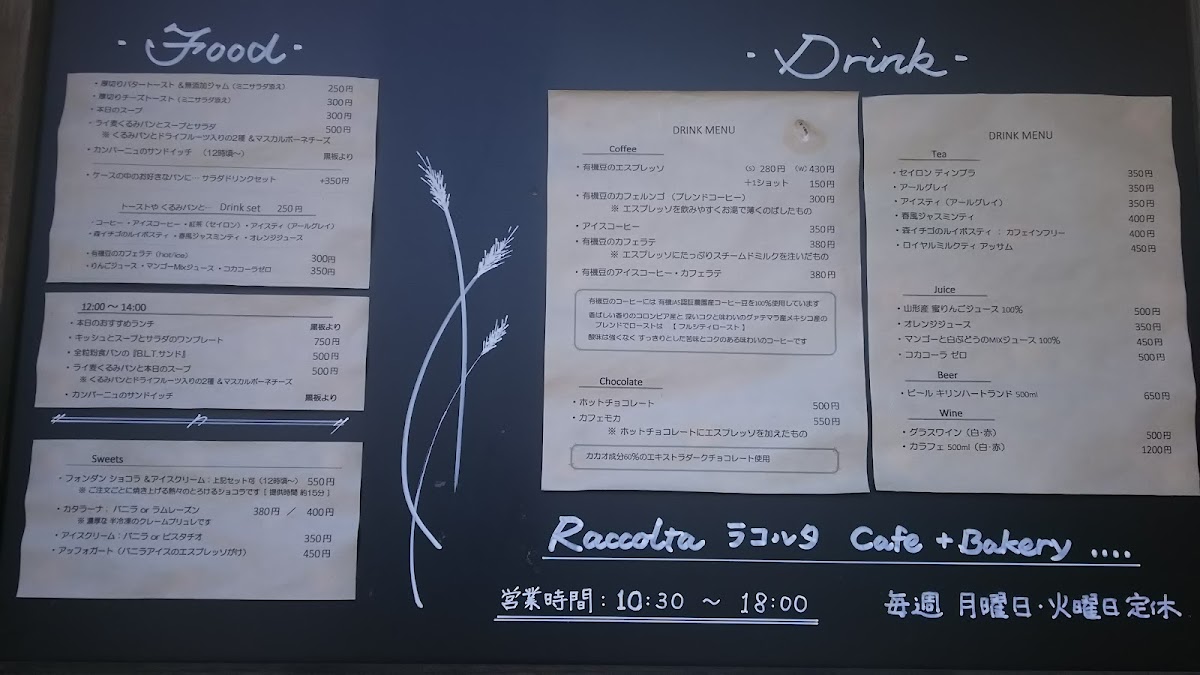 - Food -
・厚切りバタートースト＆無添加ジャム（ミニサラダ添え） 250円
・厚切りチーズトースト（ミニサラダ添え） 300円
・本日のスープ 300円
・ライ麦くるみパンとスープとサラダ 500円
※ くるみパンとドライフルーツ入りの2種 ＆マスカルポーネチーズ
・カンパーニュのサンドイッチ （12時頃～） 黒板より
・ケースの中のお好きなパンに… サラダドリンクセット +350円
トーストや くるみパンと… Drink set 250円
・コーヒー ・アイスコーヒー ・紅茶（セイロン）・アイスティ（アールグレイ）
・森イチゴのルイボスティ ・春風ジャスミンティ ・オレンジジュース
・有機豆のカフェラテ（hot/ice） 300円
・りんごジュース ・マンゴーMixジュース ・コカコーラゼロ 350円
12:00 ～ 14:00
・本日のおすすめランチ 黒板より
・キッシュとスープとサラダのワンプレート 750円
・全粒粉食パンの『B.L.T.サンド』 500円
・ライ麦くるみパンと本日のスープ 500円
※ くるみパンとドライフルーツ入りの2種 ＆マスカルポーネチーズ
・カンパーニュのサンドイッチ 黒板より
Sweets
・フォンダン ショコラ ＆アイスクリーム：上記セット可（12時頃～） 550円
※ ご注文ごとに焼き上げる熱々のとろけるショコラです［ 提供時間 約15分 ］
・カタラーナ： バニラ or ラムレーズン 380円 ／ 400円
※ 濃厚な 半冷凍のクレームブリュレです
・アイスクリーム：バニラ or ピスタチオ 350円
・アッフォガート（バニラアイスのエスプレッソがけ） 450円
- Drink -
DRINK MENU
Coffee
・有機豆のエスプレッソ （S） 280円 （W）430円
＋1ショット 150円
・有機豆のカフェルンゴ （ブレンドコーヒー） 300円
※ エスプレッソを飲みやすくお湯で薄くのばしたもの
・アイスコーヒー 350円
・有機豆のカフェラテ 380円
※ エスプレッソにたっぷりスチームドミルクを注いだもの
・有機豆のアイスコーヒー・カフェラテ 380円
有機豆のコーヒーには 有機JAS認証農園産コーヒー豆を100％使用しています
香ばしい香りのコロンビア産と 深いコクと味わいのグァテマラ産メキシコ産の
ブレンドでローストは 【 フルシティロースト 】
酸味は強くなく すっきりとした苦味とコクのある味わいのコーヒーです
Chocolate
・ホットチョコレート 500円
・カフェモカ 550円
※ ホットチョコレートにエスプレッソを加えたもの
カカオ成分60％のエキストラダークチョコレート使用
DRINK MENU
Tea
・セイロン ディンブラ 350円
・アールグレイ 350円
・アイスティ（アールグレイ） 350円
・春風ジャスミンティ 400円
・森イチゴのルイボスティ ： カフェインフリー 400円
・ロイヤルミルクティ アッサム 450円
Juice
・山形産 蜜りんごジュース 100％ 500円
・オレンジジュース 350円
・マンゴーと白ぶどうのMIXジュース 100％ 450円
・コカコーラ ゼロ 500円
Beer
・ビール キリンハートランド 500ml 650円
Wine
・グラスワイン（白・赤） 500円
・カラフェ 500ml（白・赤） 1200円
Raccolta ラコルタ Cafe + Bakery ....
営業時間：10:30 ～ 18:00
毎週 月曜日・火曜日定休